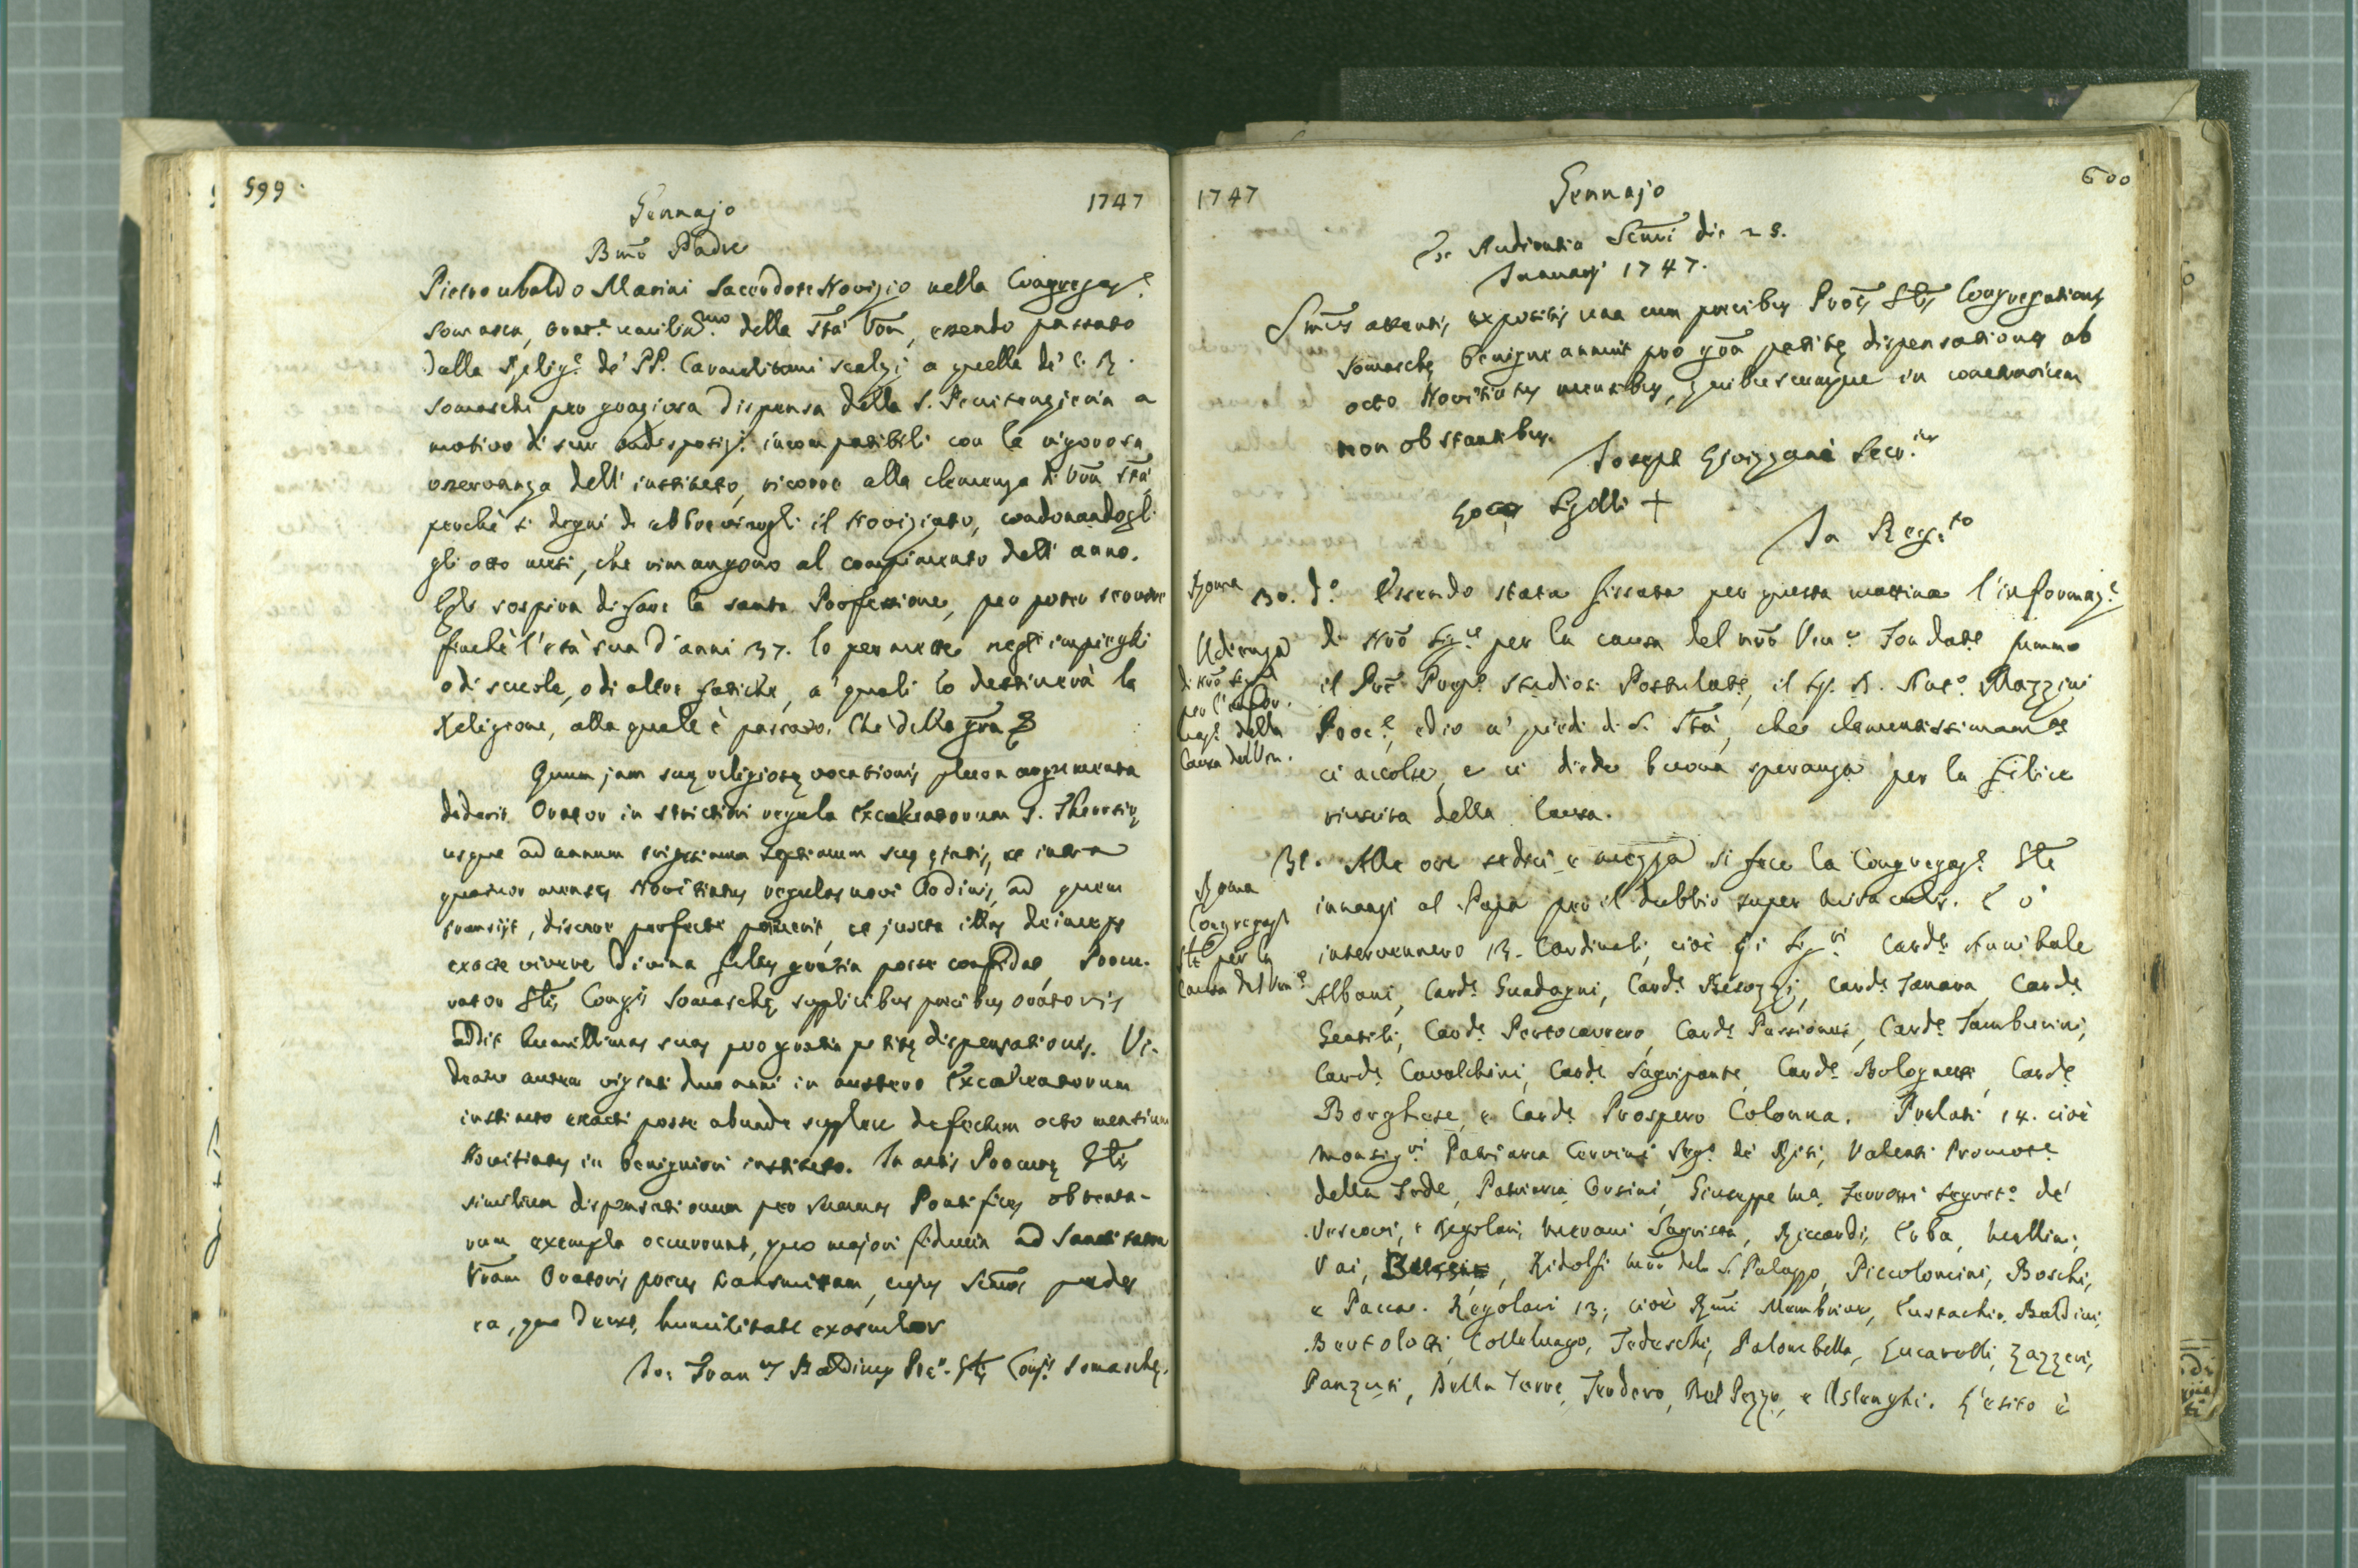 599.
1747
Gennajo
Bmo Padre
Pietro ubaldo Marini Sacerdote Novizio nella Congregaz.e
Somasca, orat.e umiliss.mo della Sta Vra, essendo passato
dalla Relig.e de' PP. Carmelitani scalzi a quella de' C. R.
Somaschi per graziosa dispensa della S. Penitenzieria a
motivo di sue indisposiz.i incompatibili con la rigorosa
osservanza dell' instituto, ricorre alla clemenza di Vra Sta,
perchè si degni di abbreviargli il Noviziato, condonandogli
gli otto mesi, che rimangono al compimento dell' anno.
Egli sospira di fare la santa Professione, per poter servire
finchè l'età sua d'anni 37. lo permette negl' impieghi
o di scuole, o di altre fatiche, a' quali lo destinerà la
Religione, alla quale è passato. Che della gra
Quum jam suę religiosę vocationis plura argumenta
dederit Orator in strictiori regula Excalceatorum S. Theresię
usque ad annum trigesimum septimum suę ętatis, et intra
quatuor menses Novitiatus regulas novi Ordinis, ad quem
transijt, discere perfecte potuerit, et juxta illas deinceps
exacte vivere Divina fultus gratia posse confidat, Procu-
rator Glis Congis Somaschę supplicibus precibus oratoris
addit humillimas suas pro gratia petitę dispensationis. Vi-
dentur autem viginti duo anni in austero Excalceatorum
instituto exacti posse abunde supplere defectum octo mensium
Novitiatus in benigniori instituto. In actis Procurę Glis
similium dispensationum per summos Pontifices obtenta-
rum exempla occurrunt, quo majori fiducia ad Sanctitatem
Vram Oratoris preces transmittam, cujus Semos pedes
ea, qua decet, humilitate exosculor
Jo: Fran.us Baldinus Pror. Glis Congis Somaschę.
1747
600
Gennajo
Ex Audientia Ssmi die 28.
Januarij 1747.
Ssmus attentis expositis una cum precibus Prois Glis Congregationis
Somaschę benigne annuit pro gra petitę dispensationis ab
octo Novitiatus mensibus, quibuscumque in contrarium
non obstantibus.
Joseph Livizzani Secr.ius
Loco Sigilli +
In Reg.to
Roma
Udienza
di Nro Sig.e
per l'infor-
maz.e della
Causa del Ven.
30. d.o Essendo stata fissata per questa mattina l'informaz.e
di Nro Sig.e per la causa del nro Ven.e Fondat.e fummo
il Pre Prep.to Studiosi Postulat.e, il Sig. D. Ant.o Mazzini
Proc.e, ed io a' piedi di S. Sta, che clementissimam.te
ci accolse, e ci diede buona speranza per la felice
riuscita della Causa.
Roma
Congregaz.e
Gle per la
Causa del Ven.e
31. Alle ore sedici e mezza si fece la Congregaz.e Gle
innanzi al Papa per il dubbio super miraculis. V' 
intervennero 13. Cardinali, cioè gli Sig.ri Card.e Annibale
Albani, Card.e Guadagni, Card.e Besozzi, Card.e Tanara, Card.e
Gentili, Card.e Portocarrero, Card.e Passionei, Card.e Tamburini,
Card.e Cavalchini, Card.e Sagripante, Card.e Bolognetti, Card.e
Borghese, e Card.e Prospero Colonna. Prelati 14. cioè
Monsig.ri Patriarca Cervini Seg.o de' Riti, Valenti Promot.e
della Fede, Patriarca Orsini, Giuseppe Ma. Ferroni Segret.o de'
Vescovi, e Regolari, Merani Sagrista, Riccardi, Erba, Mellini,
Vai, Ridolfi Mro del S. Palazzo, Piccolomini, Boschi,
e Pacca. Regolari 13; cioè Rmi Membrive, Eustachio, Baldini,
Bertolotti, Colleluago, Tedeschi, Palombella, Lucarelli, Zazzeri,
Panzuti, Della Torre, Teodoro, Del Pezzo, e Aslenghi. L'esito è